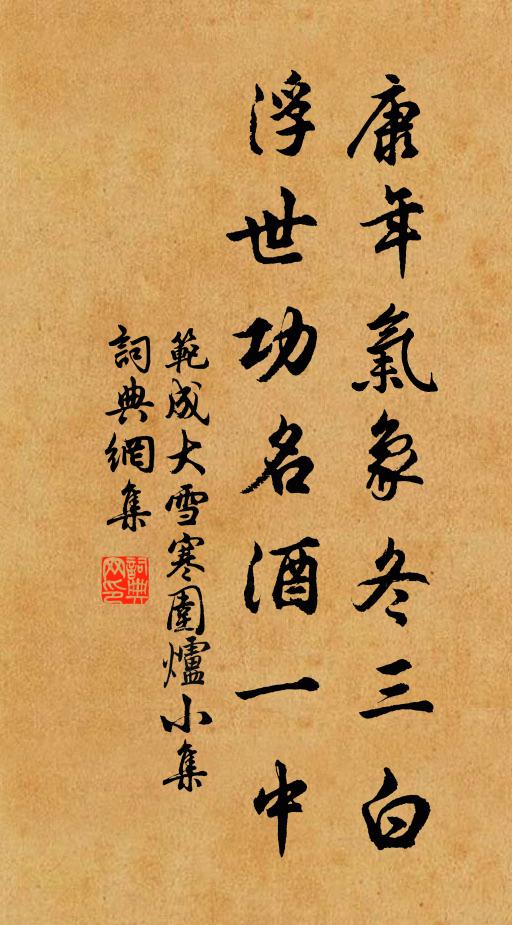 康年氣象冬三白
浮世功名酒一中
範成大雪寒圍爐小集
詞典網集
詞典网印